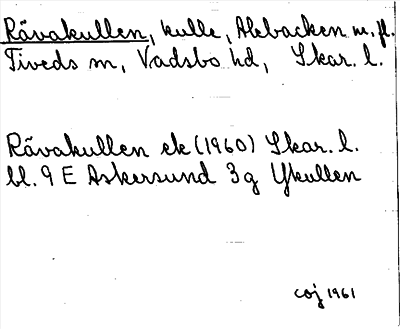 Rävakullen, kulle, Alebacken m.fl.
Tiveds sn, Vadsbo hd, Skar. l.
Rävakullen ek (1960) Skar. l.
bl. 9 E Askersund 3g Ykullen
coj 1961